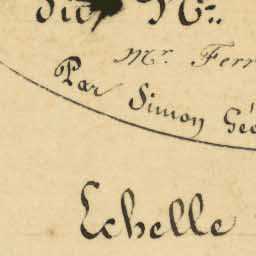 dit Mr.
Mr. Ferr
Par Simon Géo
Echelle